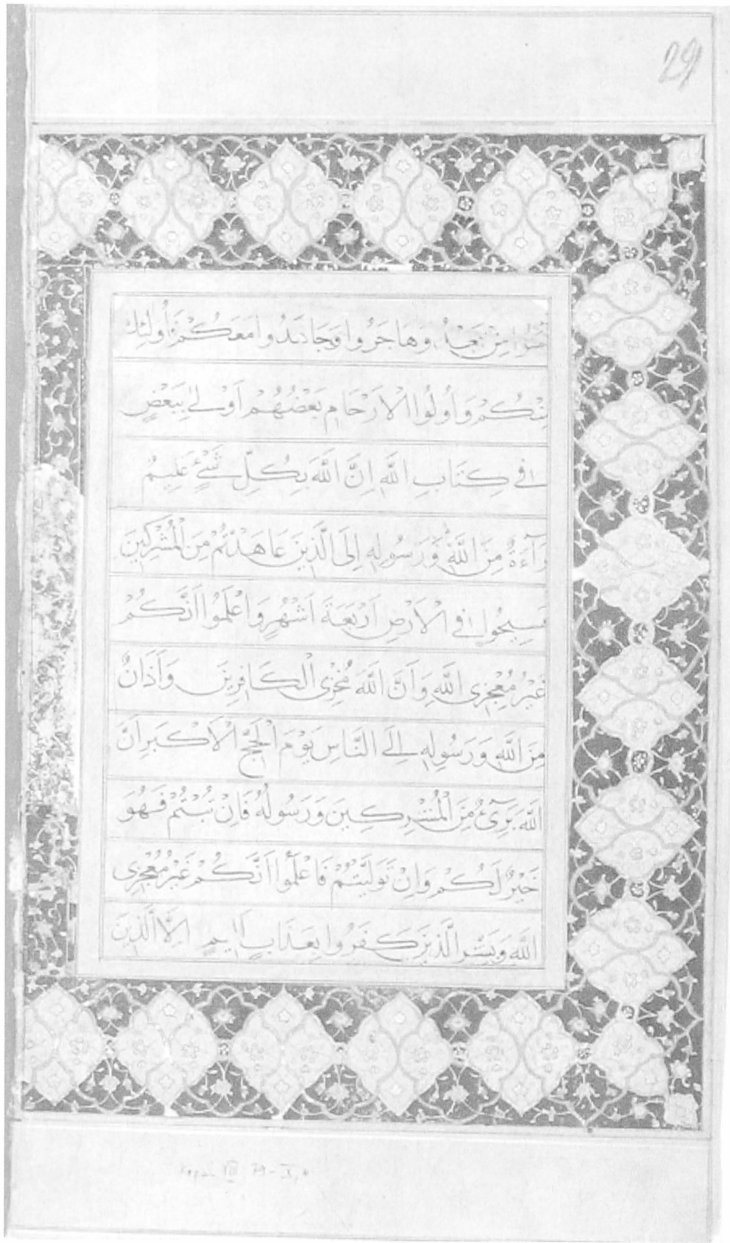 29
آمَنُوا مِنْ بَعْدُ وَهَاجَرُوا وَجَاهَدُوا مَعَكُمْ فَأُولَئِكَ
مِنْكُمْ وَأُولُوا الْاَرْحَامِ بَعْضُهُمْ اَوْلَى بِبَعْضٍ
فِي كِتَابِ اللَّهِ اِنَّ اللَّهَ بِكُلِّ شَيْءٍ عَلِيمٌ
رَآءَةٌ مِنَ اللَّهِ وَرَسُولِهِ اِلَى الَّذِينَ عَاهَدْتُمْ مِنَ الْمُشْرِكِينَ
فَسِيحُوا فِي الْاَرْضِ اَرْبَعَةَ اَشْهُرٍ وَاعْلَمُوا اَنَّكُمْ
غَيْرُ مُعْجِزِي اللَّهِ وَاَنَّ اللَّهَ مُخْزِي الْكَافِرِينَ وَاَذَانٌ
مِنَ اللَّهِ وَرَسُولِهِ اِلَى النَّاسِ يَوْمَ الْحَجِّ الْاَكْبَرِ اَنَّ
اللَّهَ بَرِيءٌ مِنَ الْمُشْرِكِينَ وَرَسُولُهُ فَاِنْ تُبْتُمْ فَهُوَ
خَيْرٌ لَكُمْ وَاِنْ تَوَلَّيْتُمْ فَاعْلَمُوا اَنَّكُمْ غَيْرُ مُعْجِزِي
اللَّهِ وَبَشِّرِ الَّذِينَ كَفَرُوا بِعَذَابٍ اَلِيمٍ اِلَّا الَّذِينَ